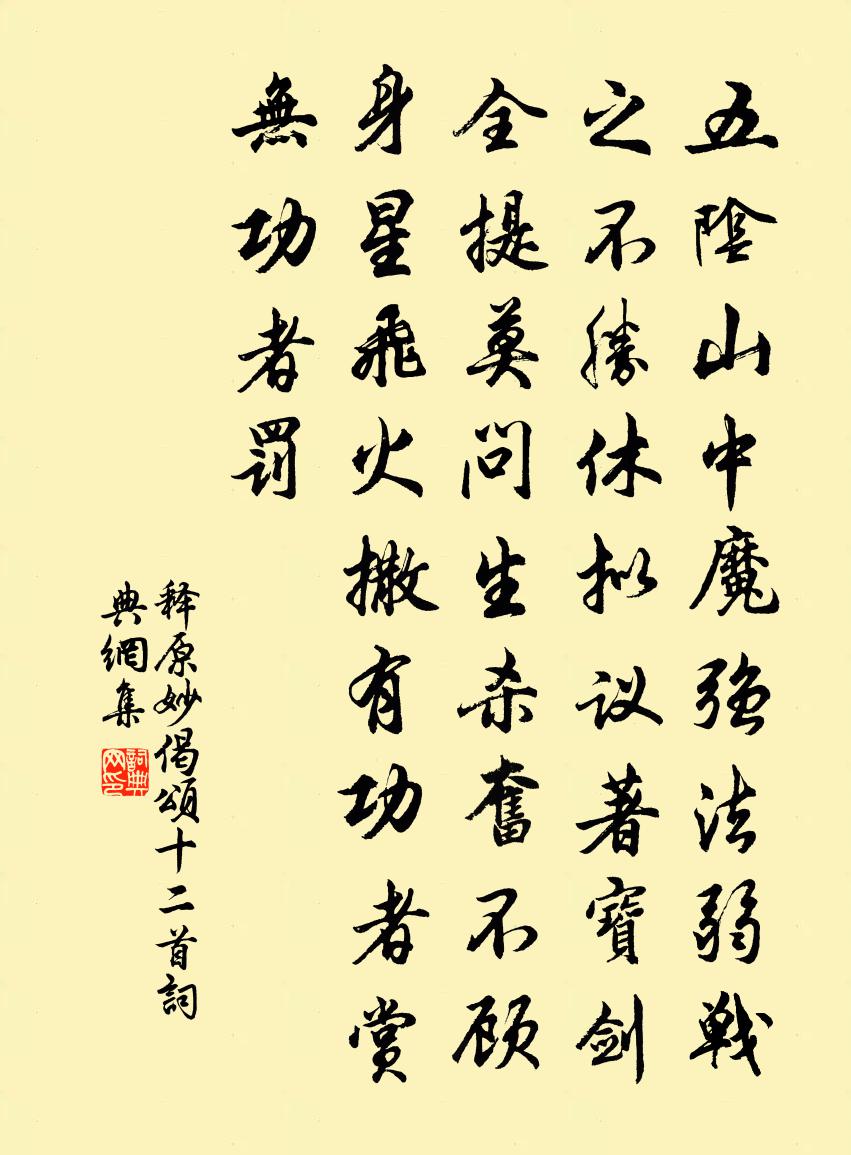 五陰山中魔強法弱戰
之不勝休拟议著寶劍
全提莫问生杀奮不顾
身星飛火撒有功者赏
無功者罰
释原妙偈頌十二首詞
典網集
詞典网印